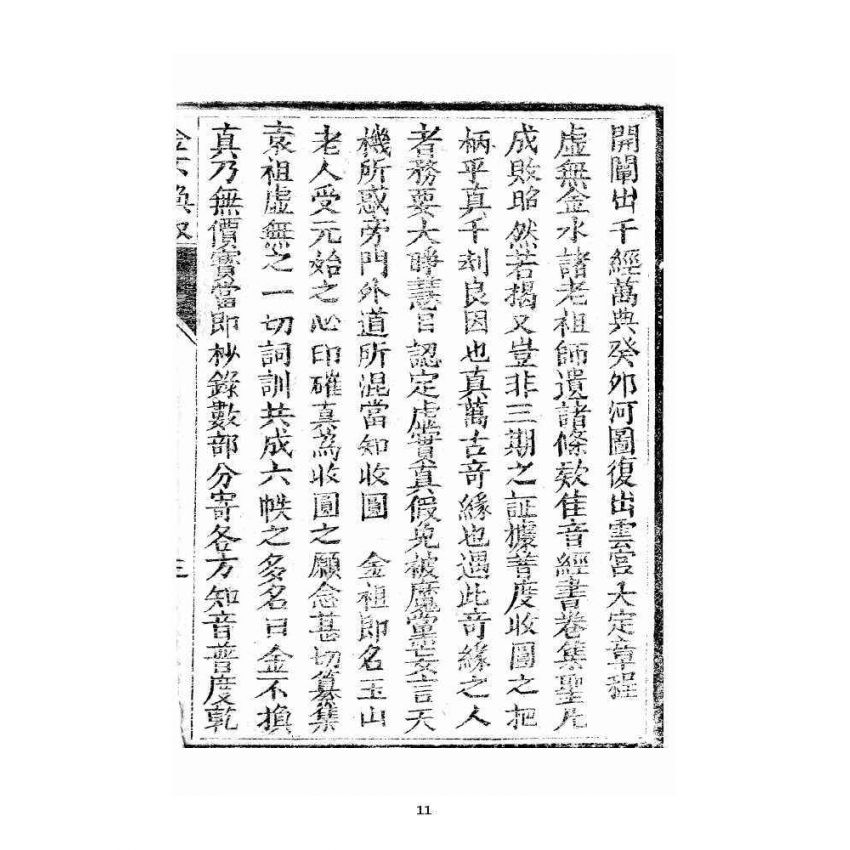 開闡出千經萬典癸卯河圖復出雲宮大定章程
虛無金水諸老祖師遺諸條欵佳音經書卷集聖凡
成敗昭然若揭又豈非三期之証據普度收圓之把
柄乎真千刼良因也真萬古奇緣也遇此奇緣之人
者務要大睜慧目認定虛實真假免被魔黨訨妄言天
機所惑旁門外道所混當知收圓　金祖即名玉山
老人受元始之心印確真為收圓之願念甚切纂集
袁祖虛無之一切詞訓共成六帙之多名曰金不換
真乃無價寶當即抄錄數部分寄各方知音普度乾
金不換叙
三
11